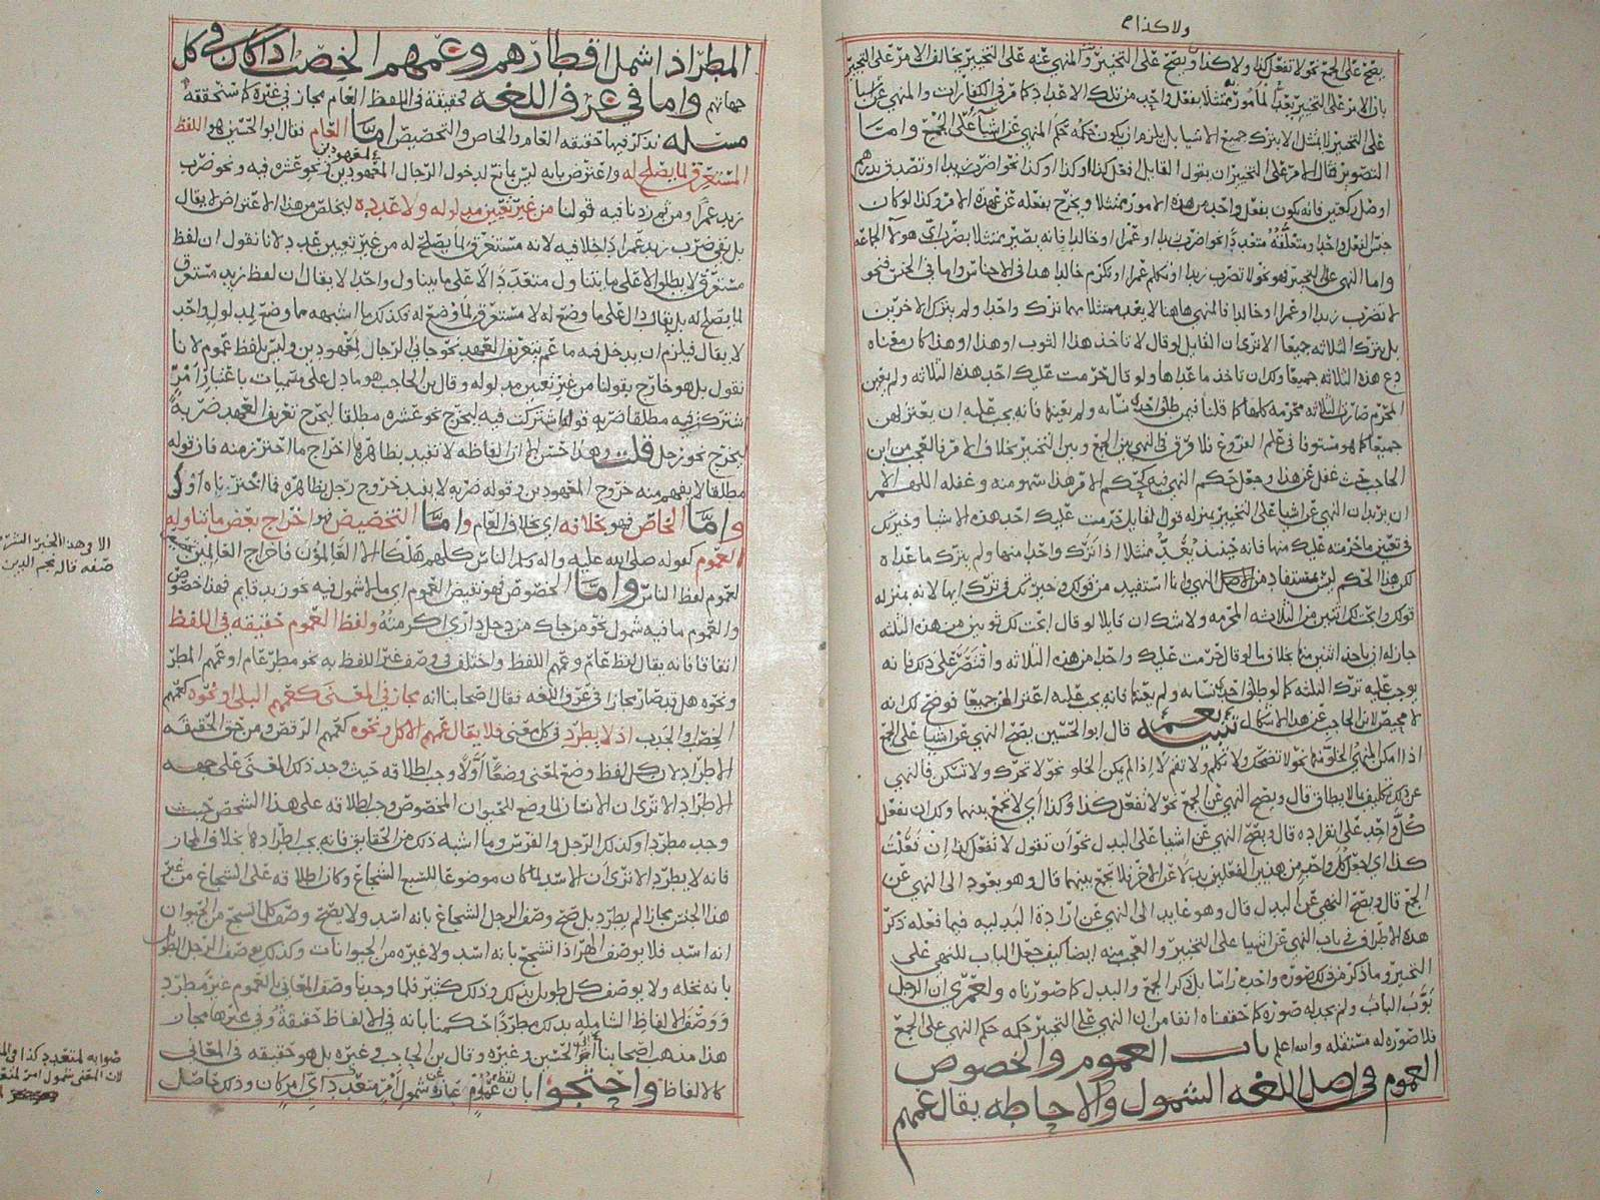 ولا كذا م
يصح على الجمع نحو لا تفعل كذا ولا كذا ويصح على التخيير والمنهي عنه على التخيير يخالف الامر على التخيير
بان الامر على التخيير يعد المأمور ممتثلا بفعل واحد من تلك الاعداد كما مر في الكفارات والمنهي عن اشيا
على التخيير لا يمتثل الا بترك جميع الاشيا بل يلزم ان يكون حكمه حكم المنهي عن اشيا على الجمع وامـا
التصوير فقال الامر على التخيير ان يقول القايل افعل كذا او كذا او كذا نحو اضرب زيدا او تصدق بدرهم
او صل ركعتين فانه يكون بفعل واحد من هذه الامور ممتثلا ويخرج بفعله عن عهدة الامر وكذا لو كان
جنس الفعل واحدا ومتعلقه متعددا نحو اضرب زيدا او عمرا او خالدا فانه يصير ممتثلا بضرب اي هولا الجماعة
واما النهي على التخيير فهو نحو لا تضرب زيدا او تكلم عمرا او تكرم خالدا هذا في الاجناس واما في الجنس فنحو
لا تضرب زيدا او عمرا او خالدا فالمنهي هاهنا لا يعد ممتثلا مهما ترك واحدا ولم يترك الاخرين
بل بترك الثلاثه جميعا الا ترى ان القايل لو قال لا تاخذ هذا الثوب او هذا او هذا كان معناه
دع هذه الثلاثه جميعا ولك ان تاخذ ما عداها ولو قال حرمت عليك احد هذه الثلاثه ولم يعين
المحرم صارت الثلاثه محرمه كلها كما قلنا فيمن طلق احد نسآيه ولم يعينها فانه يجب عليه ان يعتزلهن
جميعا كما هو مستوفا في علم الفروع فلا فرق في النهي بين الجمع وبين التخيير بخلاف الامر فالعجب من ابن
الحاجب حيث غفل عن هذا وجعل حكم النهي فيه كحكم الامر فهذا سهو منه وغفله اللهم الا
ان يريد ان النهي عن اشيا على التخيير بمنزله قول القايل حرمت عليك احد هذه الاشيا وخيرتك
في تعيين ما حرمته عليك منها فانه حينئذ يعد ممتثلا اذا ترك واحدا منها ولم يترك ما عداه
لكن هذا الحكم ليس بمستفاد من اصل النهي وانما استفيد من قولك وخيرتك في ترك ايها لانه بمنزله
قولك وابحت لك اثنين من الثلاثه المحرمه ولا شك ان قايلا لو قال ابحت لك ثوبين من هذه الثلثه
جاز له ان ياخذ اثنين منها بخلاف ما لو قال حرمت عليك واحدا من هذه الثلاثه واقتصر على ذلك فانه
يوجب عليه ترك الثلثه كما لو طلق احد نسآيه ولم يعينها فانه يجب عليه اعتزالهن جميعا فوضح لك انه
لا محيص لابن الحاجب عن هذا الاشكال تنبيه قال ابو الحسين يصح النهي عن اشيا على الجمع
اذا امكن المنهي الخلو منها نحو لا تضحك ولا تكلم ولا تقم لا اذا لم يمكن الخلو نحو لا تحرك ولا تسكن فالنهي
عن ذلك تكليف ما لا يطاق قال ويصح النهي عن الجمع نحو لا تفعل كذا وكذا اي لا تجمع بينهما ولك ان تفعل
كل واحد على انفراده قال ويصح النهي عن اشيا على البدل نحو ان تقول لا تفعل كذا ان فعلت
كذا اي اجعل كل واحد من هذين الفعلين بدلا عن الاخر فلا تجمع بينهما قال وهو يعود الى النهي عن
الجمع قال ويصح النهي عن البدل قال وهو غايد الى النهي عن ارادة البدليه فيما فعله ذكر
هذه الاطراف في باب النهي عن اشيا على التخيير والعجب منه ايضا كيف جعل الباب للنهي على
التخيير وما ذكر من ذلك صوره واحده راسا بل ذكر الجمع والبدل كما صورناه ولعمري ان الرجل
بوب الباب ولم يجد له صوره كما حققناه انفا من ان النهي على التخيير حكمه حكم النهي على الجمع
فلا صوره له مستقله والله اعلم باب العموم والخصوص
العموم في اصل اللغه الشمول والاحاطه يقال عمهم
المطر اذا شمل اقطارهم وعمهم الخصب اذا كان في كل
جهاتهم واما في عرف اللغه فحقيقة في اللفظ العام مجاز في غيره كما سنحققه
مسله نذكر فيها حقيقه العام والخاص والتخصيص امـا العام فقال ابو الحسين هو اللفظ
المستغرق لما يصلح له واعترض بانه ليس بمانع لدخول الرجال المعهودين ونحو عشره فيه ونحو ضرب
زيد عمرا ومن ثم زدنا فيه قولنا من غير تعيين مدلوله ولا عدده ليخلص من هذا الاعتراض لا يقال
بل بقي ضرب زيد عمرا داخلا فيه لانه مستغرق لما يصلح له من غير تعيين عدد لانا نقول ان لفظ
مستغرق لا يطلق الا على ما يتناول متعددا لا على ما يتناول واحدا لا يقال ان لفظ زيد مستغرق
لما يصلح له بل يقال دال على ما وضع له لا مستغرق لما وضع له فكذلك ما اشبهه مما وضع لمدلول واحد
لا يقال فيلزم ان يدخل فيه ما عم بتعريف العهد نحو جاني الرجال لمعهودين وليس بلفظ عموم لانا
نقول بل هو خارج بقولنا من غير تعيين مدلوله وقال بن الحاجب هو ما دل على مسميات باعتبار امر
اشتركت فيه مطلقا ضربه قوله اشتركت فيه ليخرج نحو عشره مطلقا ليخرج تعريف العهد ضربه
ليخرج نحو رجل قلت وهذا حسن الا ان الفاظه لا تفيد بظاهرها اخراج ما احترز منه فان قوله
مطلقا لا يفهم منه خروج المعهودين وقوله ضربه لا يفيد خروج رجل بظاهره فما احترزناه اولى
وامـا الخاص فهو بخلافه اي بخلاف العام وامـا التخصيص فهو اخراج بعض ما تناوله
العموم كقوله صلى الله عليه واله وسلم الناس كلهم هلكا الا العالمون فاخراج العالمين
العموم لفظ الناس وامـا الخصوص فهو نقيض العموم اي ما لا شمول فيه نحو زيد قايم فهذا خصوص
والعموم ما فيه شمول نحو من جاك من دخل داري اكرمته ولفظ العموم حقيقه في اللفظ
اتفاقا فانه يقال لفظ عام وعمهم اللفظ واختلف في وصف غير اللفظ به نحو مطر عام او عمهم المطر
ونحوه هل قد صار مجازا في عرف اللغه فقال اصحابنا انه مجاز في المعنى كعمهم البلى او نحوه كعمهم
الخصب والجدب اذ لا يطرد في كل معنى فلا يقال عمهم الاكل ونحوه كعمهم الرقص ومن حق الحقيقه
الاطراد لان كل لفظ وضع لمعنى وضعا اولا وجب اطلاقه حيث وجد ذلك المعنى على جهه
الاطراد الا ترى ان الانسان لما وضع للحيوان المخصوص وجب اطلاقه على هذا الشخص حيث
وجد مطردا وكذلك الرجل والفرس وما اشبه ذلك من الحقايق فانه يجب اطرادها بخلاف المجاز
فانه لا يطرد الا ترى ان الاسد لما كان موضوعا للسبع الشجاع وكان اطلاقه على الشجاع من غير
هذا الجنس مجازا لم يطرد بل صح وصف الرجل الشجاع بانه اسد ولا يصح وصف كل الشجع من الحيوان
انه اسد فلا يوصف الهر اذا تشجع بانه اسد ولا غيره من الحيوانات وكذلك يوصف الرجل الطويل
بانه نخله ولا يوصف كل طويل بذلك وذلك كثير فلما وجدنا وصف المعاني بالعموم غير مطرد
ووصف الالفاظ الشامله بذلك مطردا حكمنا بانه في الالفاظ حقيقة وفي غيرها مجاز
هذا مذهب اصحابنا ابو الحسين وغيره وقال بن الحاجب وغيره بل هو حقيقه في المعاني
كالالفاظ واحتجوا بان لفظ عموم عبارة عن شمول امر متعددا اي امر كان وذلك حاصل
الا وهذا الخبر
ضعفه قاله نجم الدين
صوابه لمتعدد كذا
لان المعنى شمول امر